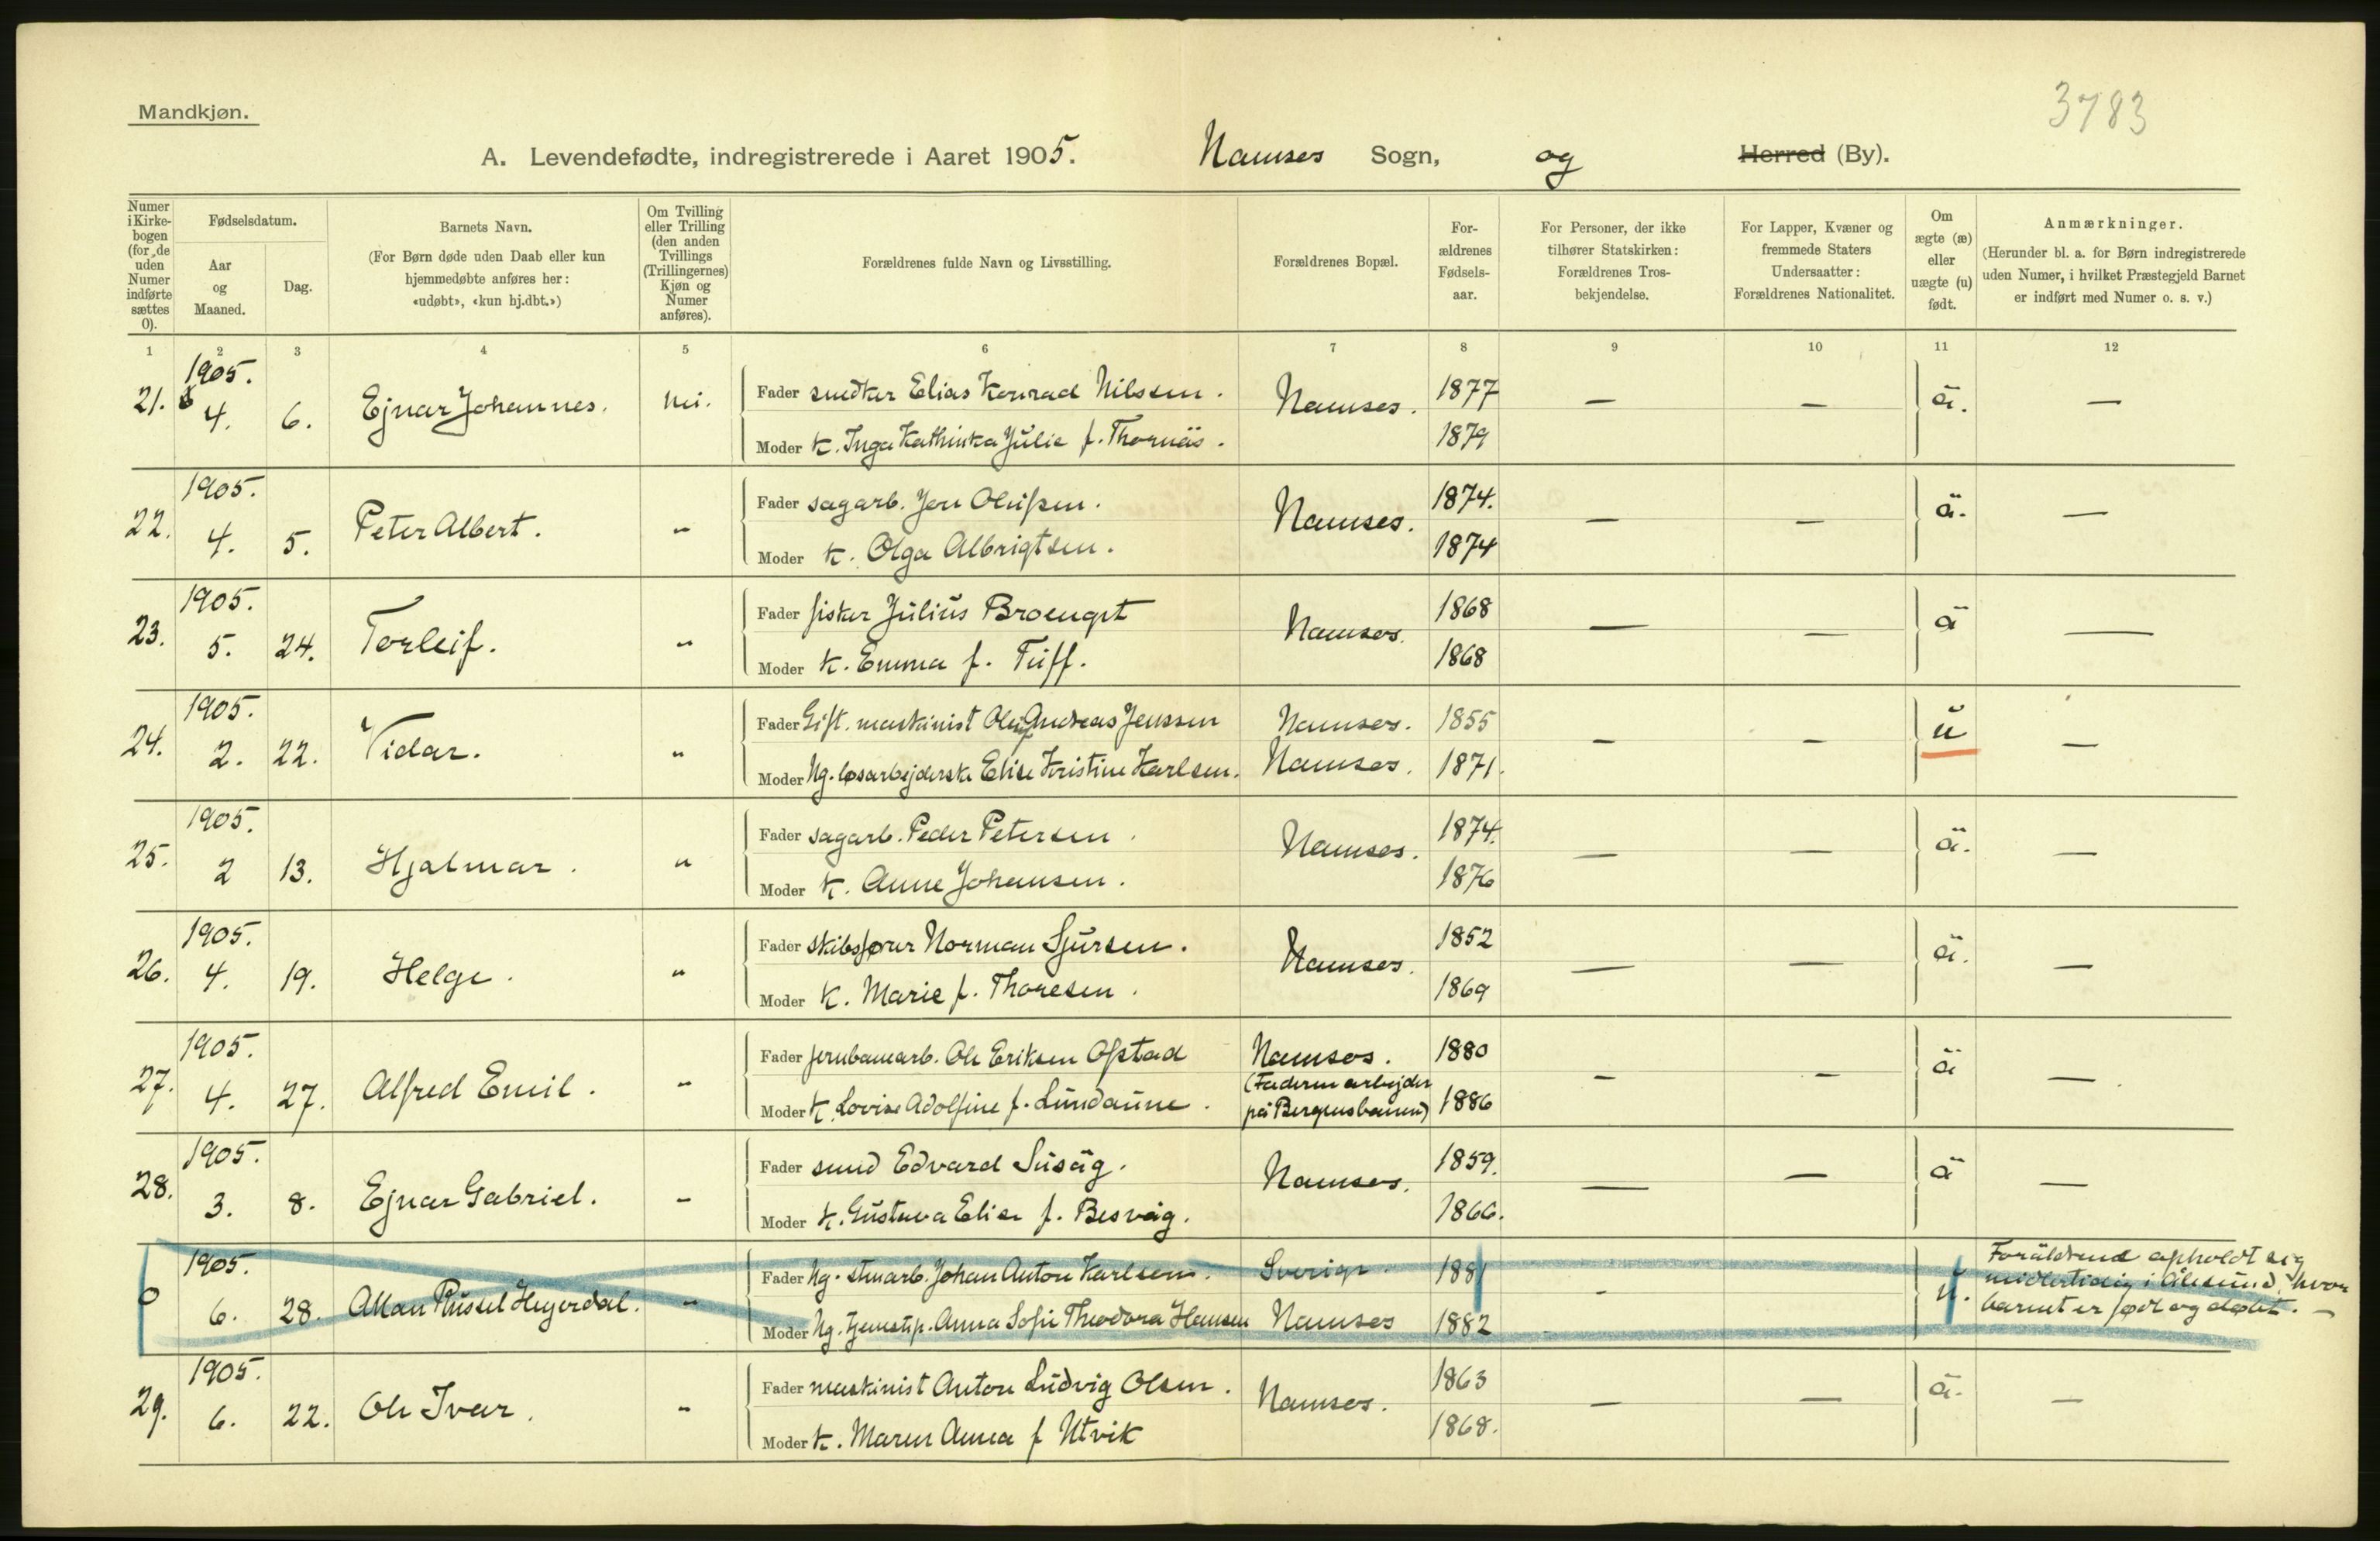 Mandkjøn.
3783
A. Levendefødte, indregistrerede i Aaret 1905. Namsos Sogn, og Herred (By).
Numer i Kirkebogen (for de uden Numer indførte sættes 0).
Fødselsdatum.
Aar og Maaned.
Dag.
Barnets Navn.
(For Børn døde uden Daab eller kun
hjemmedøbte anføres her:
«udøbt», «kun hj.dbt.»)
Om Tvilling
eller Trilling
(den anden
Tvillings
(Trillingernes)
Kjøn og
Numer
anføres).
Forældrenes fulde Navn og Livsstilling.
Forældrenes Bopæl.
For-
ældrenes
Fødsels-
aar.
For Personer, der ikke
tilhører Statskirken:
Forældrenes Tros-
bekjendelse.
For Lapper, Kvæner og
fremmede Staters
Undersaatter:
Forældrenes Nationalitet.
Om
ægte (æ)
eller
uægte (u)
født.
Anmærkninger.
(Herunder bl. a. for Børn indregistrerede
uden Numer, i hvilket Præstegjeld Barnet
er indført med Numer o. s. v.)
1 2 3 4 5 6 7 8 9 10 11 12
1905.
21. 4. 6. Ejnar Johannes. nei. Fader snedker Elias Konrad Nilssen. Namsos. 1877 — — ä. —
Moder k. Inga Kathinka Julie f. Thornäs. 1879
1905.
22. 4. 5. Peter Albert. " Fader sagarb. Jon Olufsen. Namsos. 1874. — — ä. —
Moder k. Olga Albrigtsen. 1874
1905.
23. 5. 24. Torleif. " Fader fisker Julius Broengst Namsos. 1868 — — ä —
Moder k. Emma f. Tuff. 1868
1905.
24. 2. 22. Vidar. " Fader Gift. maskinist Oluf Andreas Jenssen Namsos. 1855 — — u —
Moder Ug. løsarbejderske Elise Kristine Karlsen. Namsos. 1871.
1905.
25. 2 13. Hjalmar. " Fader sagarb. Peder Petersen. Namsos. 1874. — — ä. —
Moder k. Anne Johansen. 1876
1905.
26. 4. 19. Helge. " Fader skibsfører Norman Sjursen. Namsos. 1852 — — ä. —
Moder k. Marie f. Thoresen. 1869
1905.
27. 4. 27. Alfred Emil. " Fader jernbanearb. Ole Eriksen Ofstad Namsos. 1880 — — ä —
(Faderen arbejder
Moder k. Lovise Adolfine f. Lundaune. på Bergensbanen) 1886
1905.
28. 3. 8. Ejnar Gabriel. " Fader smed Edvard Susåg. Namsos. 1859. — — ä —
Moder k. Gustava Elise f. Besvåg. 1866.
1905.
0 6. 28. Allan Russel Heyerdal. " Fader Ug. stuarb. Johan Anton Karlsen. Sverige. 1881 - u. Foräldrene opholdt sig
midlertidig i Ålesund, hvor
barnet er født og døbt. —
Moder Ug. tjenestp. Anna Sofie Theodora Hansen Namsos 1882
1905.
29. 6. 22. Ole Ivar. " Fader maskinist Anton Ludvig Olsen. Namsos. 1863 — — ä. —
Moder k. Maren Anna f Utvik 1868.